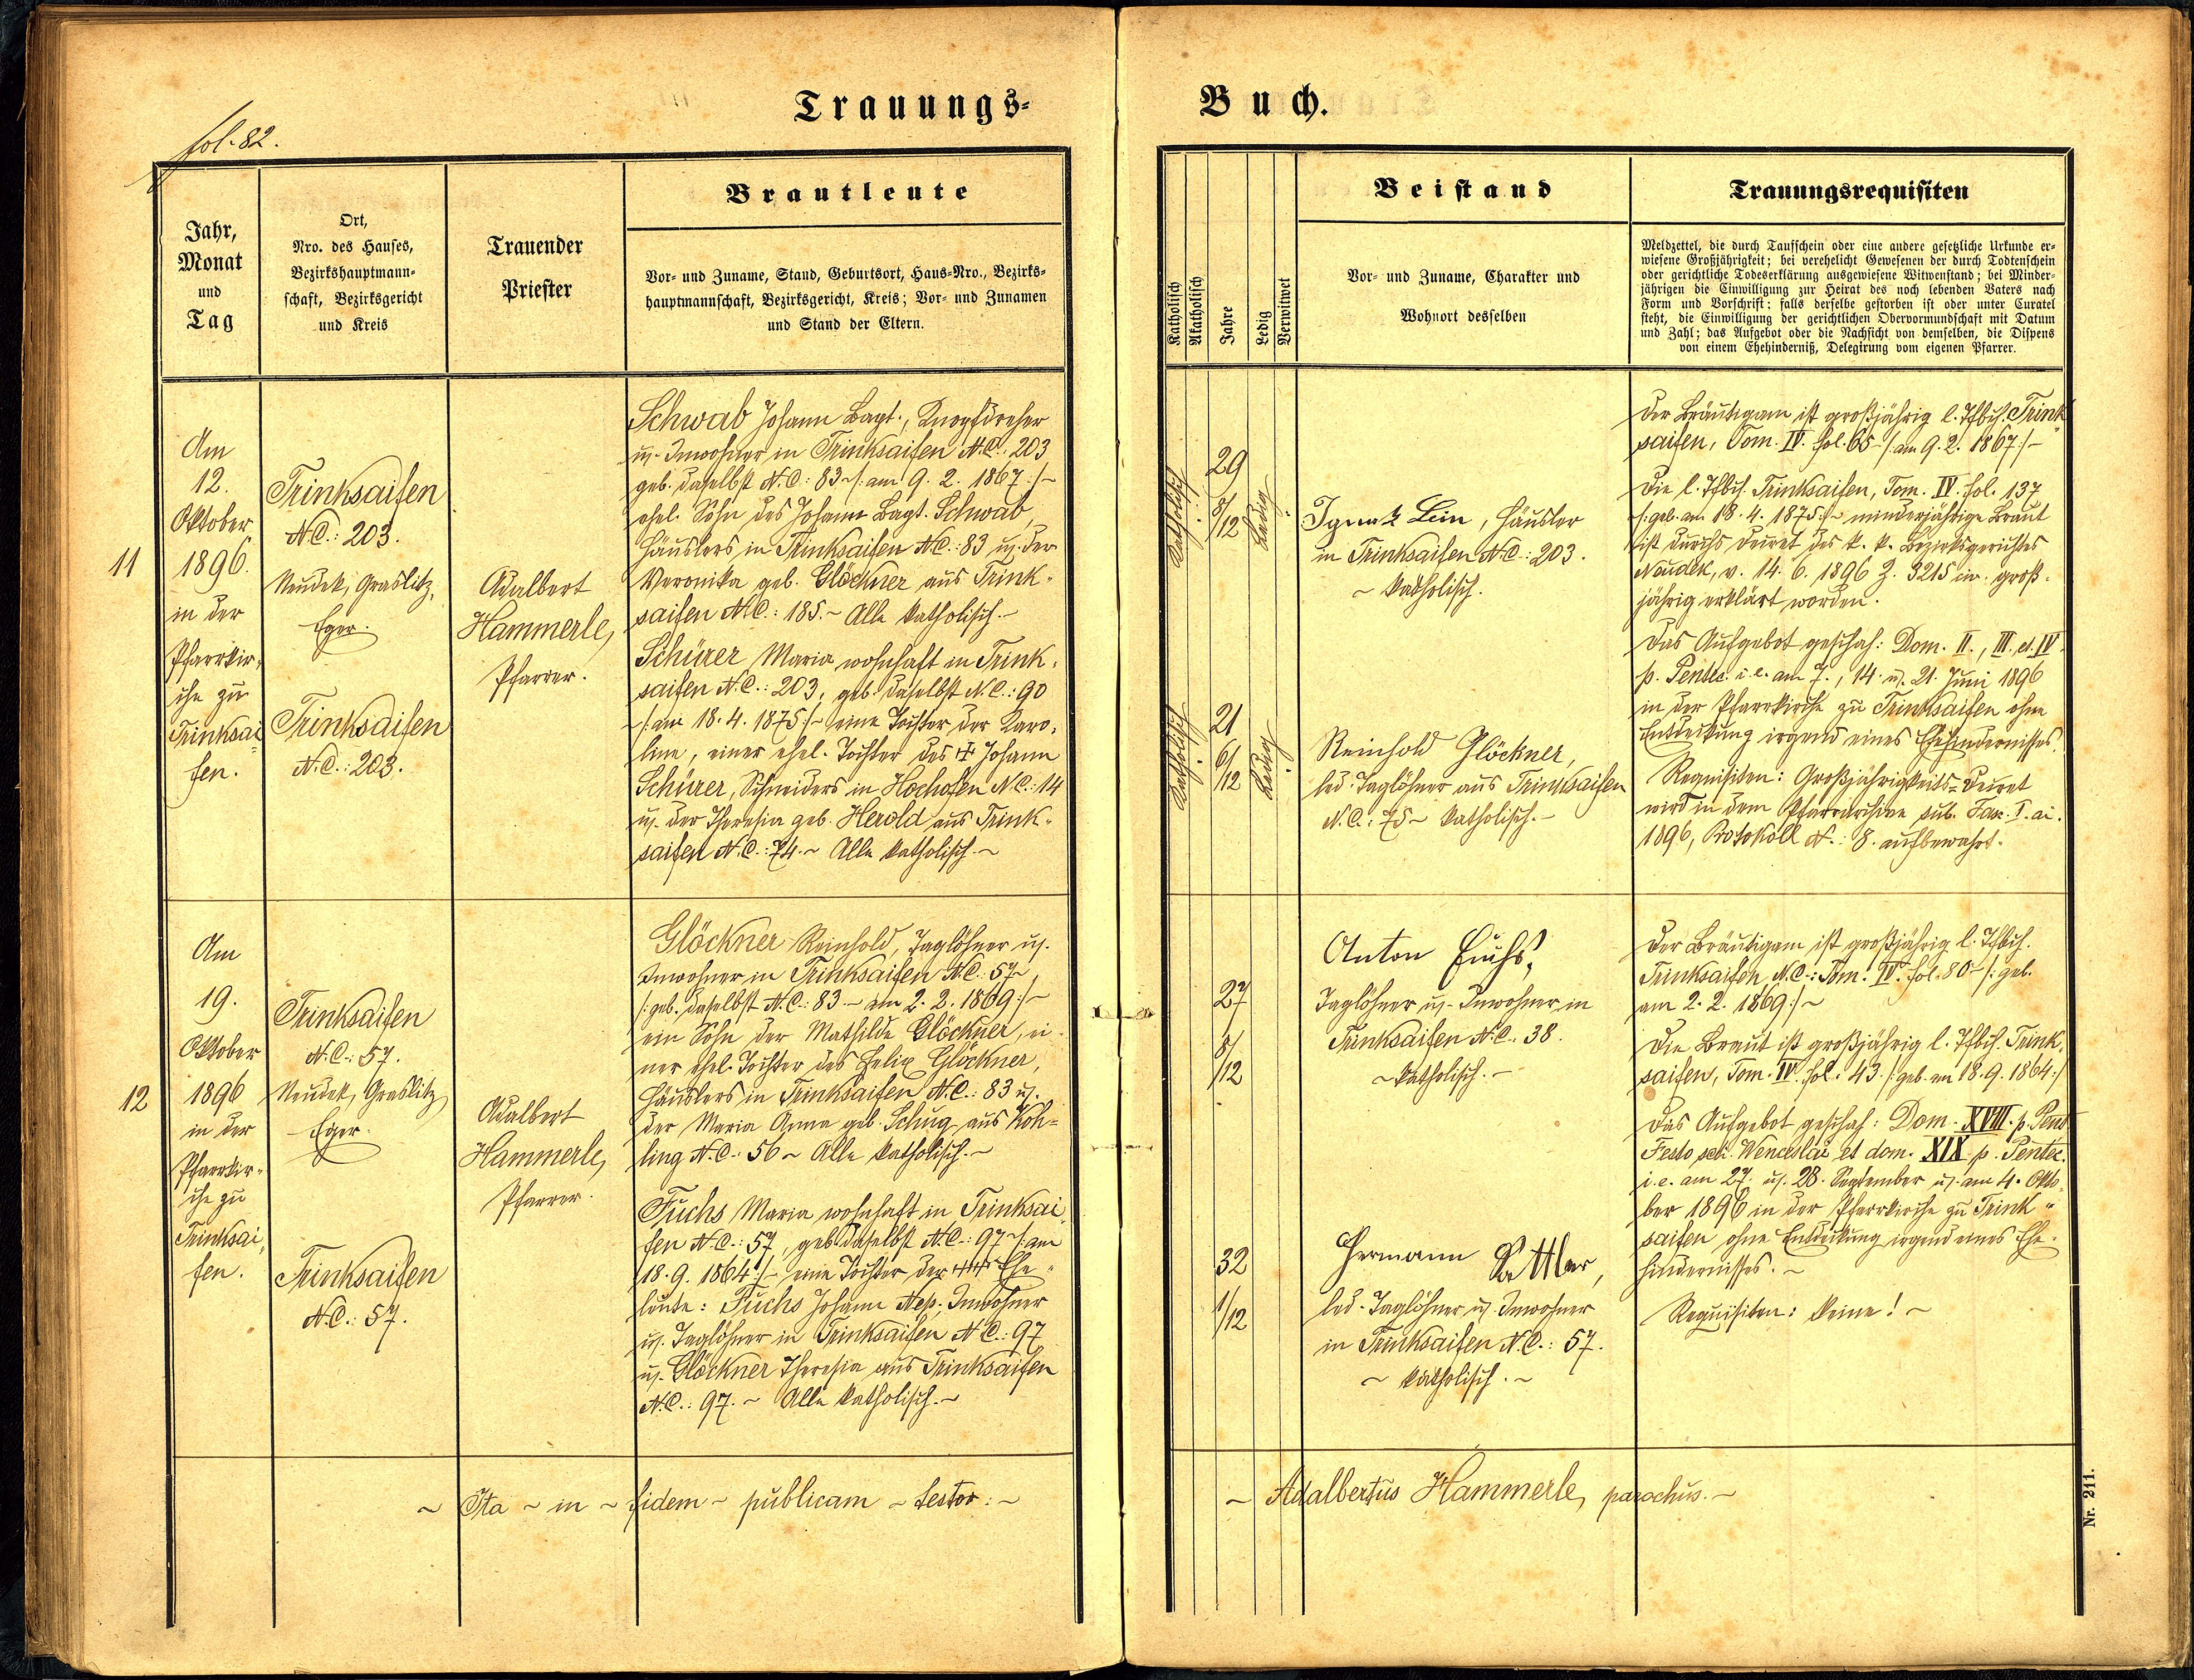 fol. 82.
Trauungs-
Buch.
Jahr,
Monat
und
Tag
Ort,
Nro. des Hauses,
Bezirkshauptmann-
schaft, Bezirksgericht
und Kreis
Trauender
Priester
Brautleute
Vor- und Zuname, Stand, Geburtsort, Haus-Nro., Bezirks-
hauptmannschaft, Bezirksgericht, Kreis; Vor- und Zunamen
und Stand der Eltern.
Katholisch
Akatholisch
Jahre
Ledig
Verwitwet
Beistand
Vor- und Zuname, Charakter und
Wohnort desselben
Trauungsrequisiten
Meldzettel, die durch Taufschein oder eine andere gesetzliche Urkunde er-
wiesene Großjährigkeit; bei verehelicht Gewesenen der durch Todtenschein
oder gerichtliche Todeserklärung ausgewiesene Witwenstand; bei Minder-
jährigen die Einwilligung zur Heirat des noch lebenden Vaters nach
Form und Vorschrift; falls derselbe gestorben ist oder unter Curatel
steht, die Einwilligung der gerichtlichen Obervormundschaft mit Datum
und Zahl; das Aufgebot oder die Nachsicht von demselben, die Dispens
von einem Ehehinderniß, Delegirung vom eigenen Pfarrer.
11
Am
12.
Oktober
1896.
in der
Pfarrkir-
che zu
Trinksai
fen.
Trinksaifen
N.C.: 203.
Neudek, Graslitz,
Eger.
Trinksaifen
N.C.: 203.
Adalbert
Hammerle,
Pfarrer.
Schwab Johann Bapt., Knopfdreher
u. Inwohner in Trinksaifen N.C. 203
geb. daselbst N.C: 83 ~/: am 9. 2. 1867 :/~
ehel. Sohn des Johann Bapt. Schwab,
Häuslers in Trinksaifen N.C.: 83 u. der
Veronika geb. Glöckner aus Trink-
saifen N.C.: 185. ~ Alle katholisch. ~
Schürer Maria wohnhaft in Trink-
saifen N.C.: 203, geb. daselbst N.C.: 90
~/: am 18. 4. 1875 :/~ eine Tochter der Karo-
line, einer ehel. Tochter des ‡ Johann
Schürer, Schneiders in Hochofen N.C.: 14
u. der Theresia geb. Herold aus Trink-
saifen N.C.: 74. ~ Alle katholisch. ~
Katholisch
29
8/12
Ledig
Katholisch
21
6/12
Ledig
Ignatz Lein, Häusler
in Trinksaifen N.C.: 203.
~ katholisch.
Reinhold Glöckner,
led. Taglöhner aus Trinksaifen
N.C.: 75 ~ katholisch. ~
Der Bräutigam ist großjährig l. Tfbch. Trink
saifen, Tom. IV. fol. 65 ~/: am 9. 2. 1867 :/~
Die l. Tfbch. Trinksaifen, Tom. IV. fol. 137
~/: geb. am 18. 4. 1875 :/~ minderjährige Braut
ist durchs Decret des k. k. Bezirksgerichtes
Neudek, v. 14. 6. 1896 Z. 3215 civ. groß-
jährig erklärt worden.
Das Aufgebot geschah: Dom. II., III. et IV.
p. Pentec. i. e. am 7., 14. u. 21. Juni 1896
in der Pfarrkirche zu Trinksaifen ohne
Entdeckung irgend eines Ehehindernisses.
Requisiten: Großjährigkeits-Decret
wird in dem Pfarrarchive sub. Fasc. I. ai.
1896, Protokoll N.: 8. aufbewahrt.
12
Am
19.
Oktober
1896
in der
Pfarrkir-
che zu
Trinksai
fen.
Trinksaifen
N.C.: 57.
Neudek, Graslitz,
Eger.
Trinksaifen
N.C.: 57.
Adalbert
Hammerle,
Pfarrer.
Glöckner Reinhold, Taglöhner u.
Inwohner in Trinksaifen N.C.: 57 ~
/: geb. daselbst N.C.: 83 ~ am 2. 2. 1869 :/~
ein Sohn der Mathilde Glöckner, ei-
ner ehel. Tochter des Felix Glöckner,
Häuslers in Trinksaifen N.C.: 83 u.
der Maria Anna geb. Schug aus Koh=
ling N.C.: 56 ~ Alle katholisch. ~
Fuchs Maria wohnhaft in Trinksai
fen N.C.: 57, geb. daselbst N.C.: 97 ~/: am
18. 9. 1864 :/~ eine Tochter der ‡‡ Ehe-
leute: Fuchs Johann Nep. Inwohner
u. Taglöhner in Trinksaifen N.C.: 97
u. Glöckner Theresia aus Trinksaifen
N.C.: 97. ~ Alle katholisch. ~
27
8/12
32
1/12
Anton Fuchs,
Taglöhner u. Inwohner in
Trinksaifen N.C. 38.
~ katholisch. ~
Hermann Sattler,
led. Taglöhner u. Inwohner
in Trinksaifen N.C.: 57.
~ katholisch. ~
Der Bräutigam ist großjährig l. Tfbch.
Trinksaifen N.C.: Tom. IV. fol. 80 ~/: geb.
am 2. 2. 1869 :/~
Die Braut ist großjährig l. Tfbch. Trink-
saifen, Tom. IV. fol. 43. /: geb. am 18. 9. 1864 :/
Das Aufgebot geschah: Dom. XVIII. p. Pent
Festo scti. Wenceslai et dom. XIX p. Pentec.
i. e. am 27. u. 28. September u. am 4. Okto
ber 1896 in der Pfarrkirche zu Trink-
saifen ohne Entdeckung irgend eines Ehe-
hindernisses. ~
Requisiten: keine! ~
~ Ita ~ in ~ fidem ~ publicam ~ testor: ~
~ Adalbertus Hammerle, parochus. ~
Nr. 211.